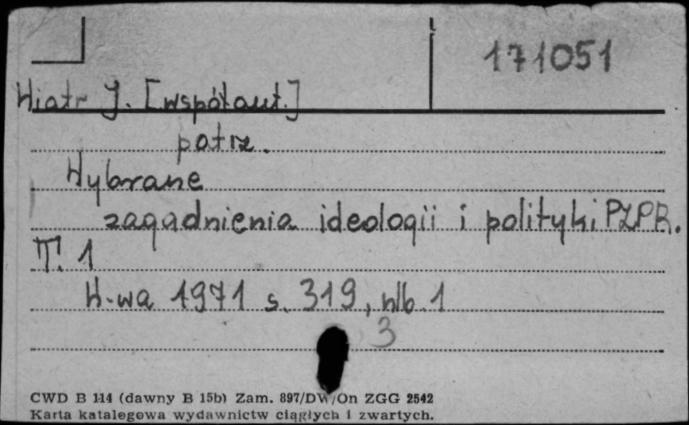 171051
Wiatr J. [współaut.]
patrz.
Wybrane
zagadnienia ideologii i polityki PZPR.
T. 1
W-wa 1971 s. 319, nlb. 1
3
CWD B 114 (dawny B 15b) Zam. 897/DW/On ZGG 2542
Karta katalogowa wydawnictw ciągłych i zwartych.